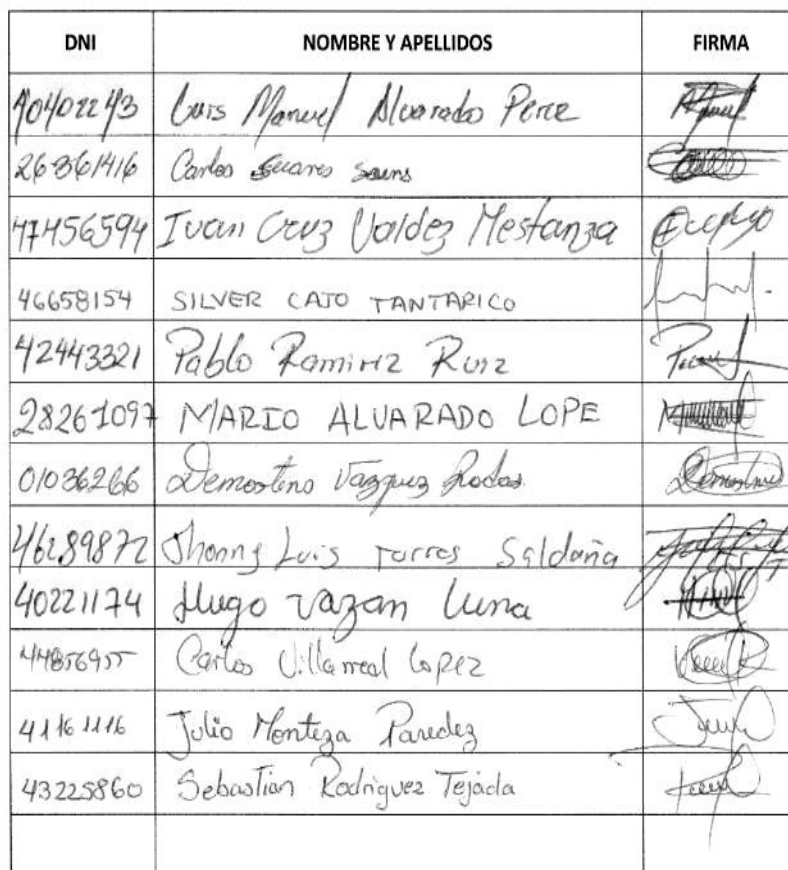 DNI NOMBRE Y APELLIDOS FIRMA
40402243 Luis Manuel Alvarado Perez
26361416 Carlos
47456594 Ivan Cruz Valdez Mestanza
46658154 SILVER CAJO TANTARICO
42443321 Pablo Ramirez Ruiz
28261097 MARIO ALVARADO LOPE
01036266 Demosteno Vazquez Rodas
46289872 Jhonny Luis Torres Saldaña
40221174 Hugo vazan Luna
44856955 Carlos Villarreal Lopez
41161116 Julio Monteza Paredez
43225860 Sebastian Rodriguez Tejada